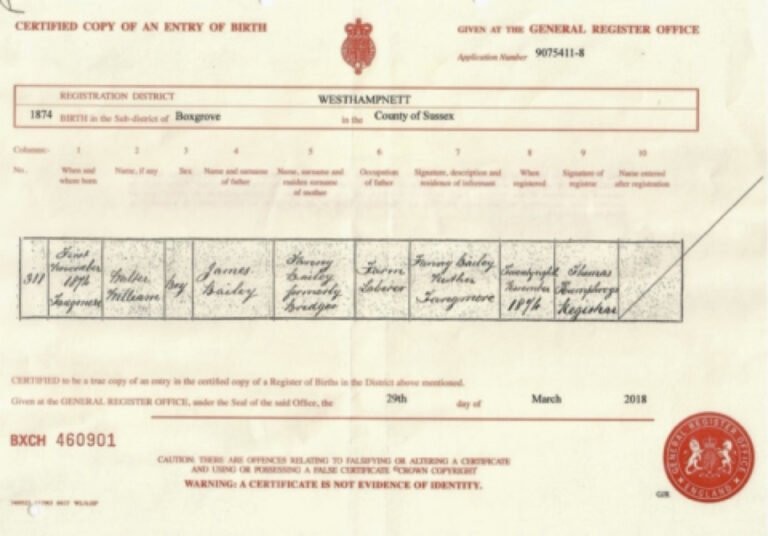 CERTIFIED COPY OF AN ENTRY OF BIRTH
GIVEN AT THE GENERAL REGISTER OFFICE
Application Number 9075411-8
REGISTRATION DISTRICT WESTHAMPNETT
1874 BIRTH in the Sub-district of Boxgrove in the County of Sussex
Columns:- 1 2 3 4 5 6 7 8 9 10
No. When and where born Name, if any Sex Name and surname of father Name, surname and maiden surname of mother Occupation of father Signature, description and residence of informant When registered Signature of registrar Name entered after registration
311 First November 1874 Tangmere
Walter William
Boy
James Bailey
Fanny Bailey formerly Bridger
Farm Laborer
Fanny Bailey Mother Tangmere
November 1874
Thomas Humphrys Registrar
CERTIFIED to be a true copy of an entry in the certified copy of a Register of Births in the District above mentioned.
Given at the GENERAL REGISTER OFFICE, under the Seal of the said Office, the 29th day of March 2018
BXCH 460901
CAUTION: THERE ARE OFFENCES RELATING TO FALSIFYING OR ALTERING A CERTIFICATE
AND USING OR POSSESSING A FALSE CERTIFICATE ©CROWN COPYRIGHT
WARNING: A CERTIFICATE IS NOT EVIDENCE OF IDENTITY.
GENERAL REGISTER OFFICE
ENGLAND